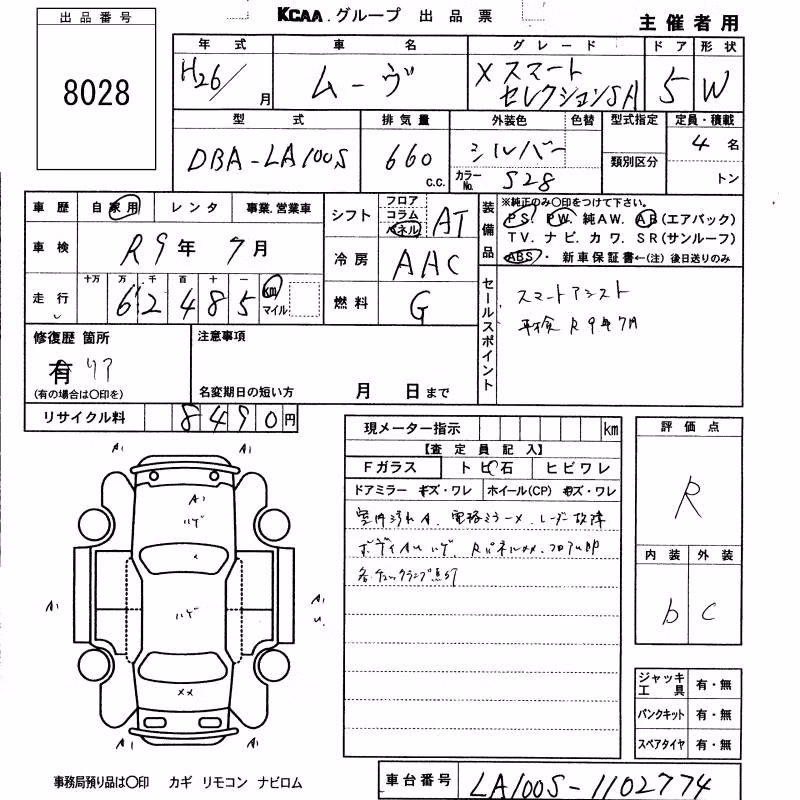 KCAA.グループ 出品票
主催者用
出品番号
8028
年式 車名 グレード ドア 形状
H26/ 月 ムーヴ Xスマート セレクションSA 5 W
型式 排気量 外装色 色替 型式指定 定員・積載
DBA-LA100S 660 c.c. シルバー 類別区分 4名
カラーNo. S28 トン
車歴 自家用 レンタ 事業.営業車
シフト フロア コラム パネル AT
装備品 ※純正のみ〇印をつけて下さい。
PS. PW. 純AW. AB(エアバック)
TV. ナビ. カワ. SR(サンルーフ)
ABS・ 新車保証書←(注) 後日送りのみ
車検 R9年 7月
冷房 AAC
走行 十万 万 千 百 十 一
62485 km マイル
燃料 G
セールスポイント
スマートアシスト
車検 R9年7月
修復歴 箇所
有 リア
(有の場合は〇印を)
注意事項
名変期日の短い方 月 日まで
リサイクル料 8490円
現メーター指示 km
【査定員記入】
Fガラス トビ石 ヒビワレ
ドアミラー キズ・ワレ ホイール(CP) キズ・ワレ
室内汚れA. 電格ミラーメ. レーダー故障
ボディAuハゲ. Rパネルメメ.フロアu凹
各チェックランプ点灯
評価点
R
内装 外装
b C
ジャッキ工具 有・無
パンクキット 有・無
スペアタイヤ 有・無
A1 A1
A1
ハゲ
×
A1 ハゲ A1
u.
××
A1 A1
事務局預り品は〇印 カギ リモコン ナビロム
車台番号 LA100S-1102774